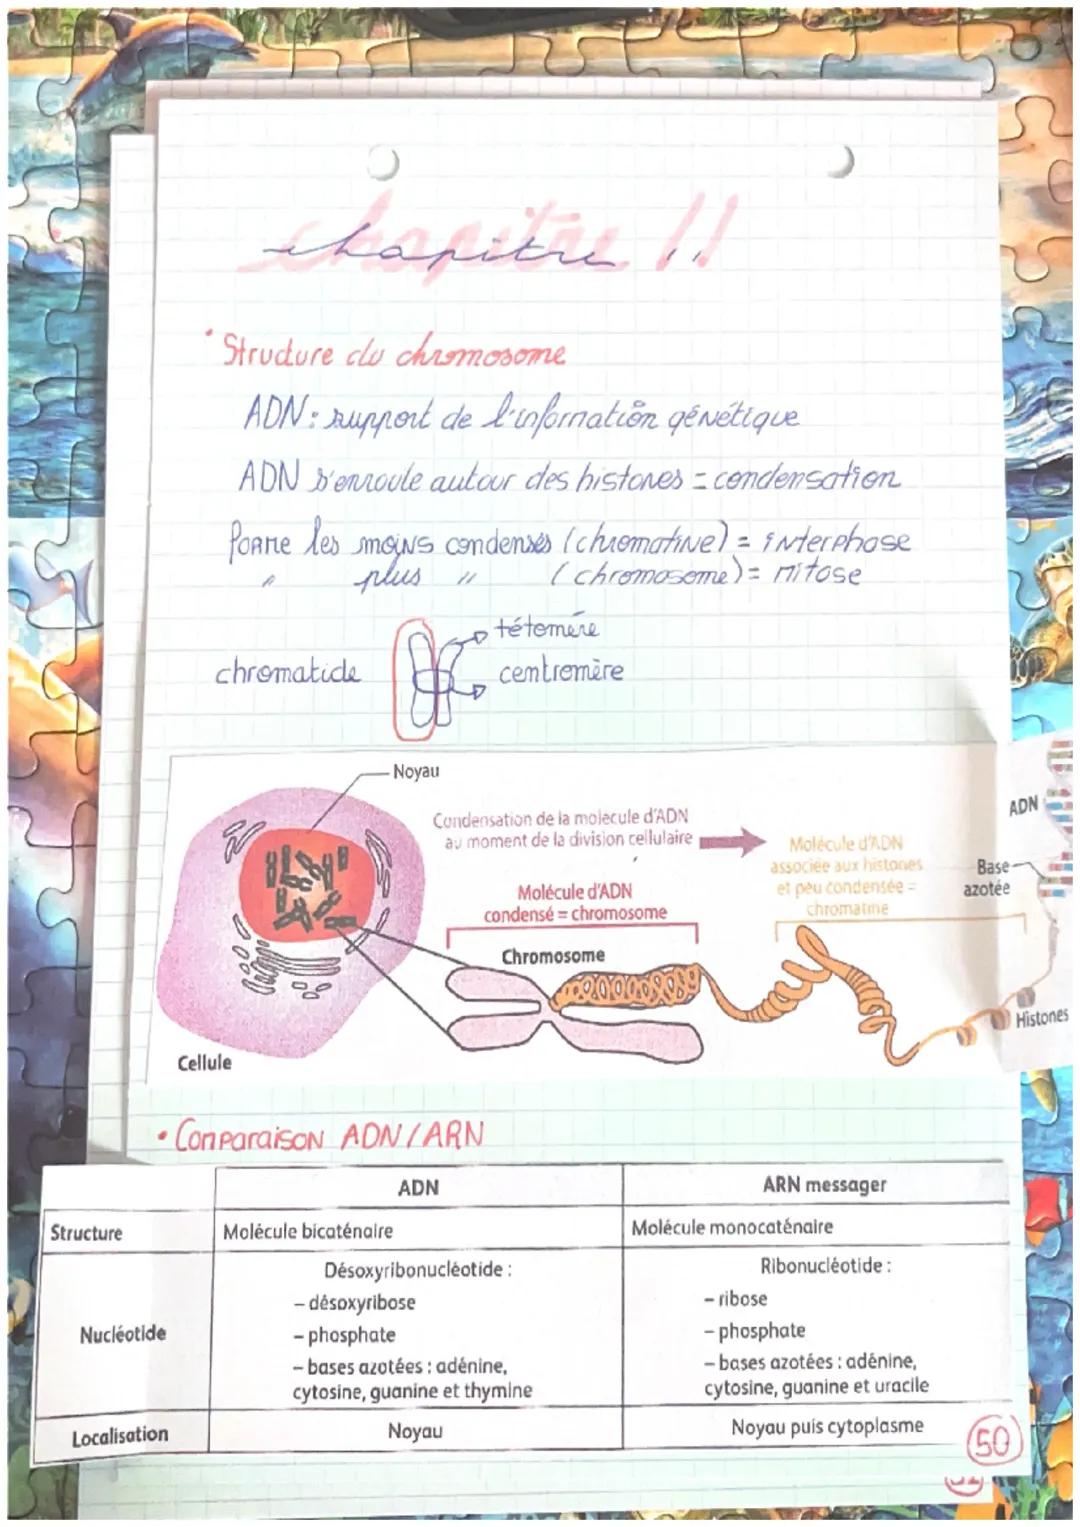 chapitre 11
• Structure du chromosome
ADN : support de l'information génétique
ADN s'enroule autour des histones = condensation
Forme les moins condensés (chromatine) = interphase
" plus " (chromosome) = mitose
tétomère
chromatide
centromère
Noyau
Condensation de la molecule d'ADN
au moment de la division cellulaire
ADN
Molécule d'ADN
associée aux histones
et peu condensée =
chromatine
Base
azotée
Molécule d'ADN
condensé = chromosome
Chromosome
Histones
Cellule
• Comparaison ADN/ARN
ADN
ARN messager
Structure
Molécule bicaténaire
Molécule monocaténaire
Nucléotide
Désoxyribonucléotide :
– désoxyribose
– phosphate
– bases azotées : adénine,
cytosine, guanine et thymine
Ribonucléotide :
– ribose
– phosphate
– bases azotées : adénine,
cytosine, guanine et uracile
Localisation
Noyau
Noyau puis cytoplasme
50